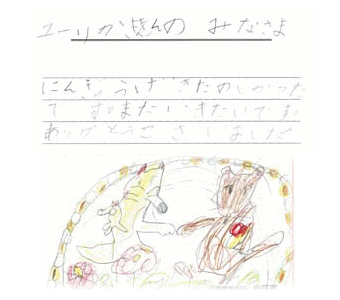 ユーリかききんの みなさま
にんぎょうげきたのしかった
です。またいきたいです。
ありがとうございました